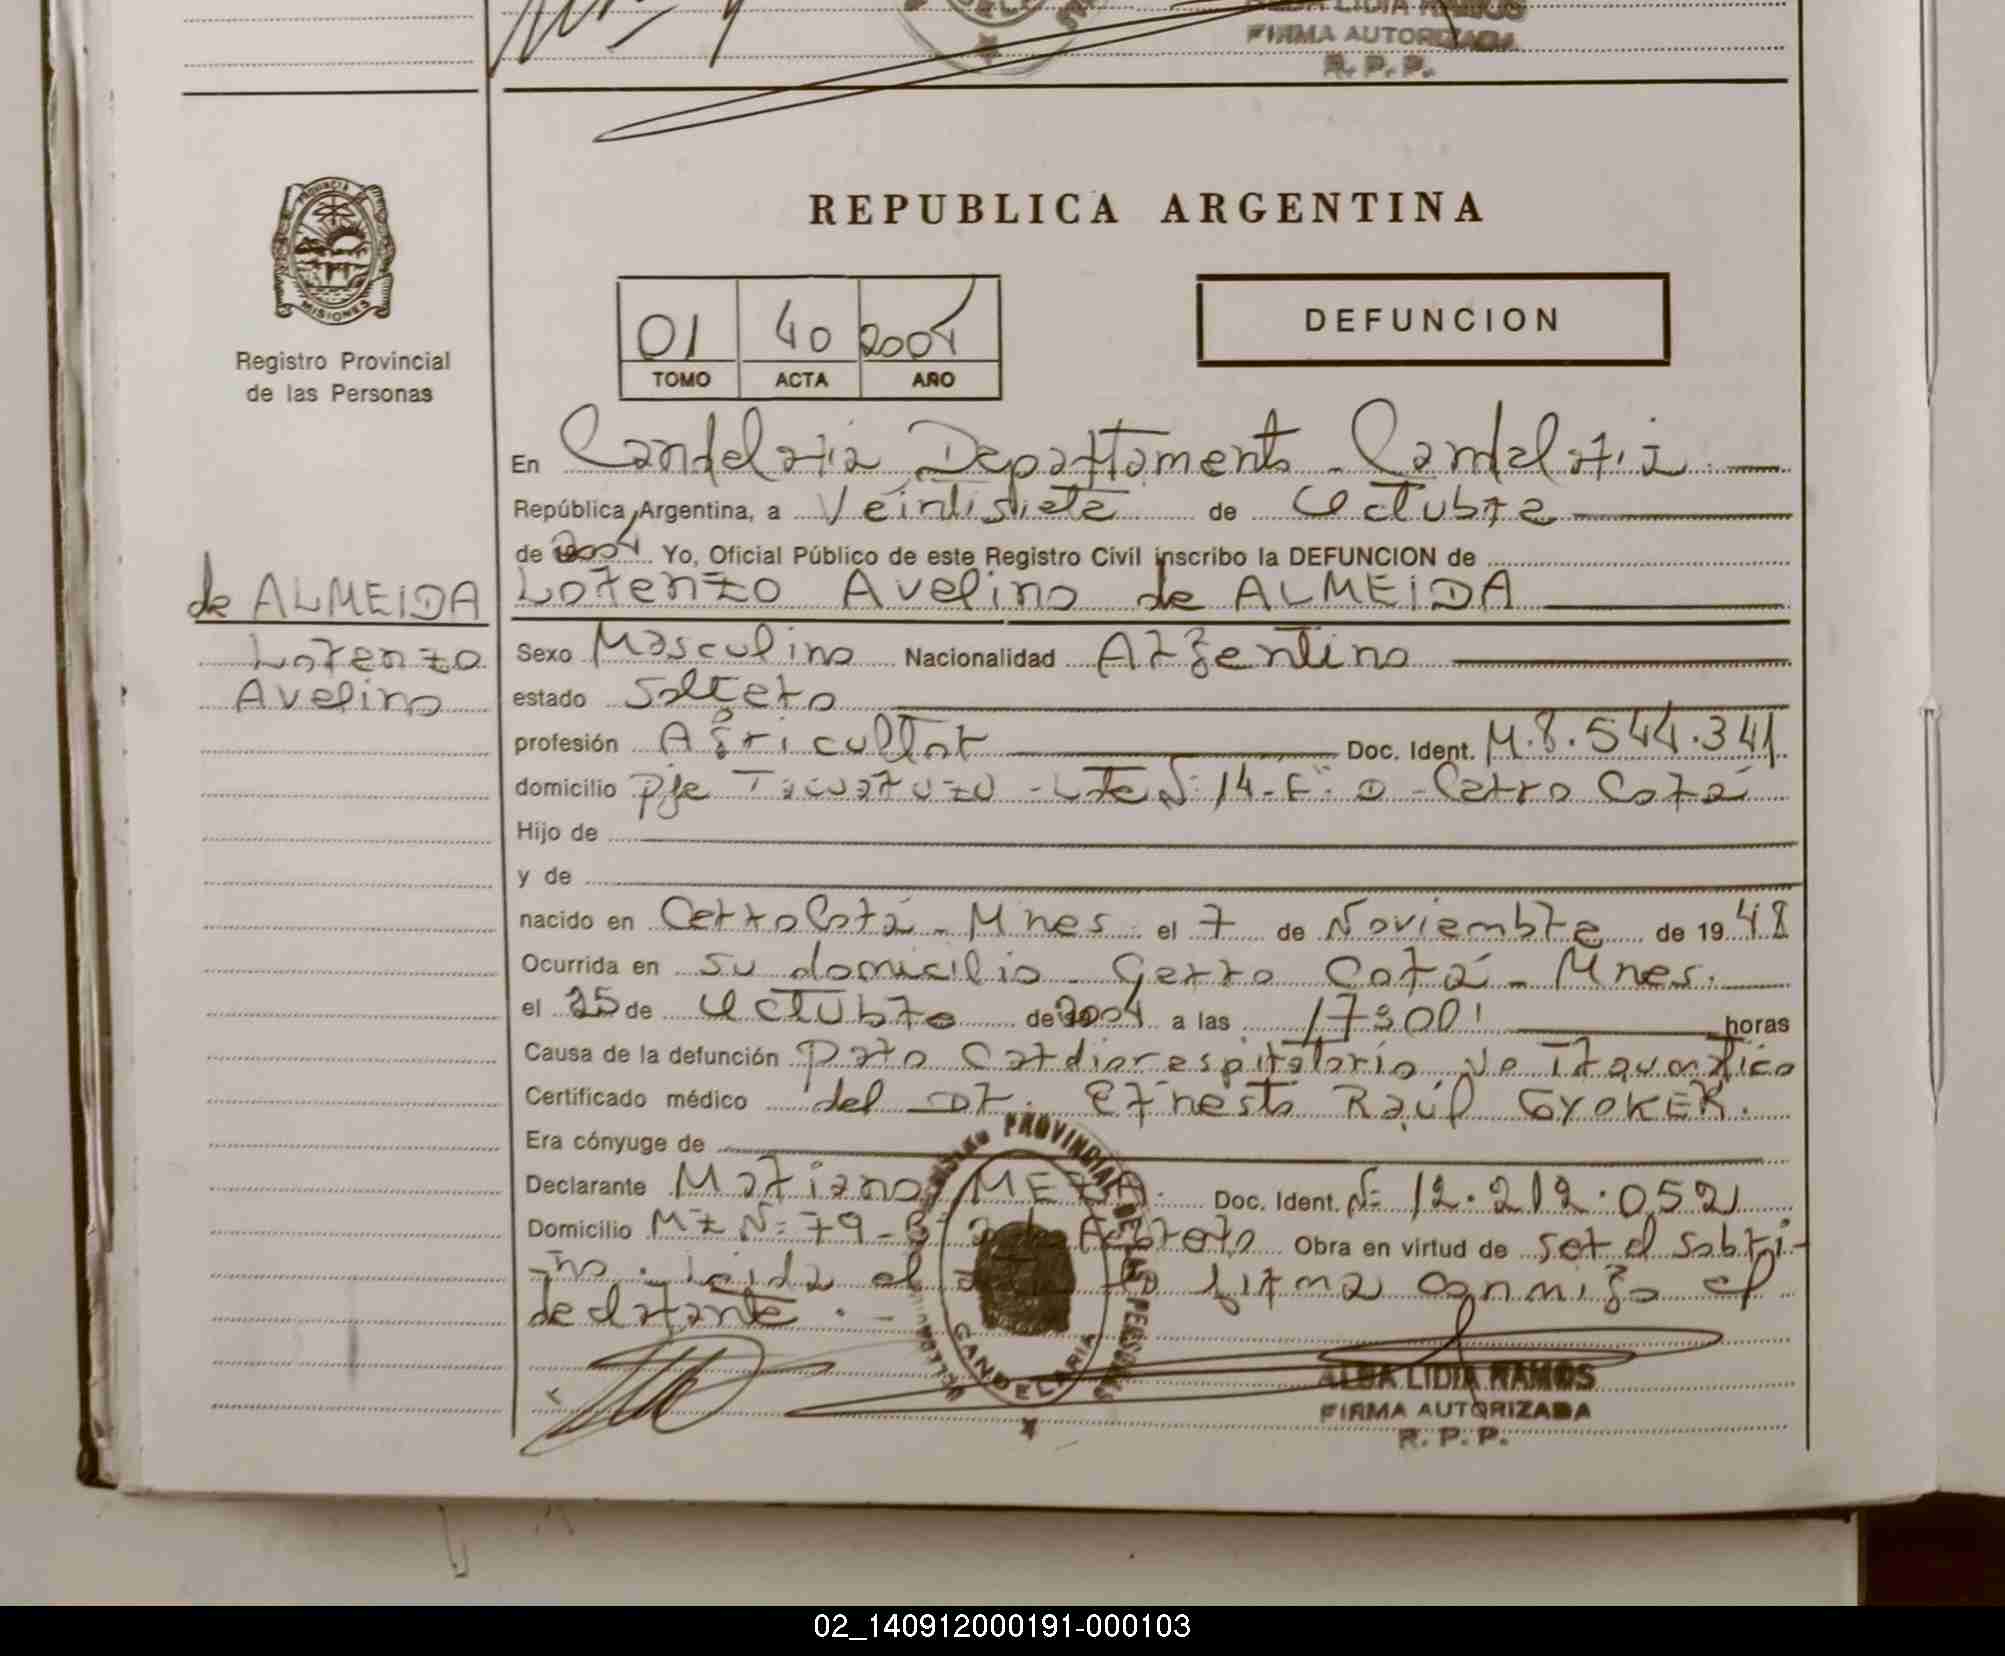 ALBA LIDIA RAMOS
FIRMA AUTORIZADA
R. P. P.
PROVINCIA
MISIONES
Registro Provincial
de las Personas
REPUBLICA ARGENTINA
01 40 2004
TOMO ACTA AÑO
DEFUNCION
En Candelaria Departamento - Candelaria
República Argentina, a Veintisiete de Octubre
de 2004 Yo, Oficial Público de este Registro Civil inscribo la DEFUNCION de
de ALMEIDA
Lorenzo
Avelino
Lorenzo Avelino de ALMEIDA
Sexo Masculino Nacionalidad Argentino
estado Soltero
profesión Agricultor Doc. Ident. M.8.544.341
domicilio Pje Tacuaruzu - Lte Nº 14-F" D - Cerro Corá
Hijo de
y de
nacido en Cerro Corá - Mnes. el 7 de Noviembre de 1948
Ocurrida en su domicilio - Cerro Corá - Mnes.
el 25 de Octubre de 2004 a las 17:00' horas
Causa de la defunción Paro Cardiorespiratorio, no traumático
Certificado médico del Dr. Ernesto Raúl GYOKER.
Era cónyuge de
Declarante Mariano MEZA. Doc. Ident. Nº 12.212.052
Domicilio Mz Nº 79 - Bº Obra en virtud de ser el sobri-
no. Leida el firma conmigo el
declarante. -
REGISTRO PROVINCIAL DE LAS PERSONAS
CANDELARIA
ALBA LIDIA RAMOS
FIRMA AUTORIZADA
R. P. P.
02_140912000191-000103